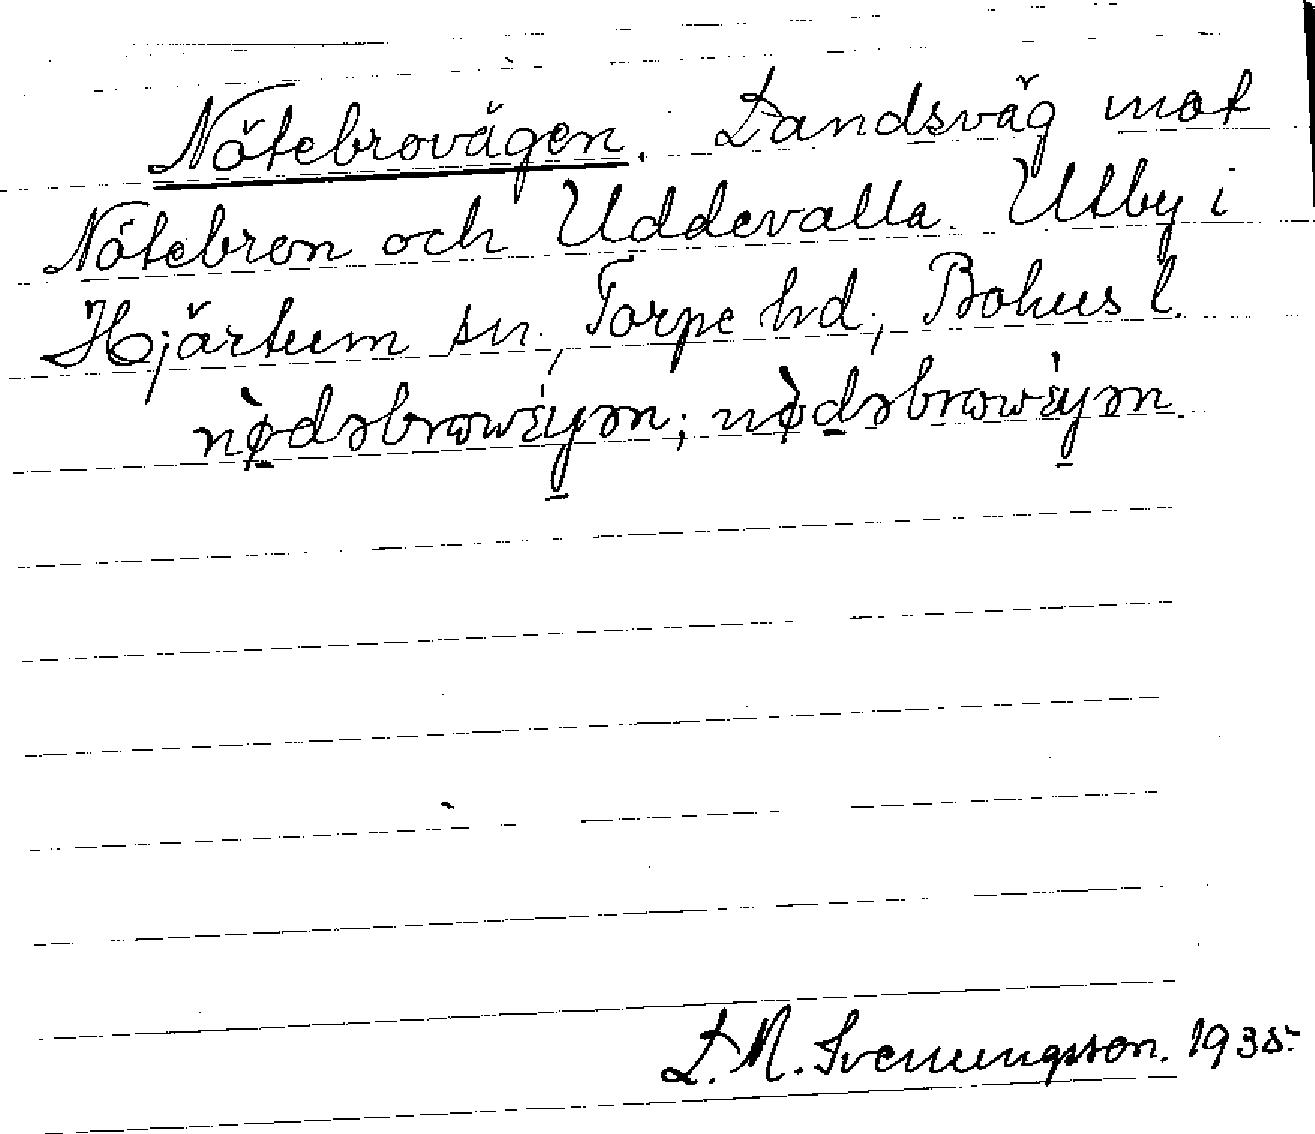 Nötebrovägen. Landsväg mot
Nötebron och Uddevalla. Utby i
Hjärtum sn, Torpe hd, Bohus l.
nø̀dəbrowɛ́yən; nø̀dəbrowɛ́yən.
L. M. Svenungsson. 1935.